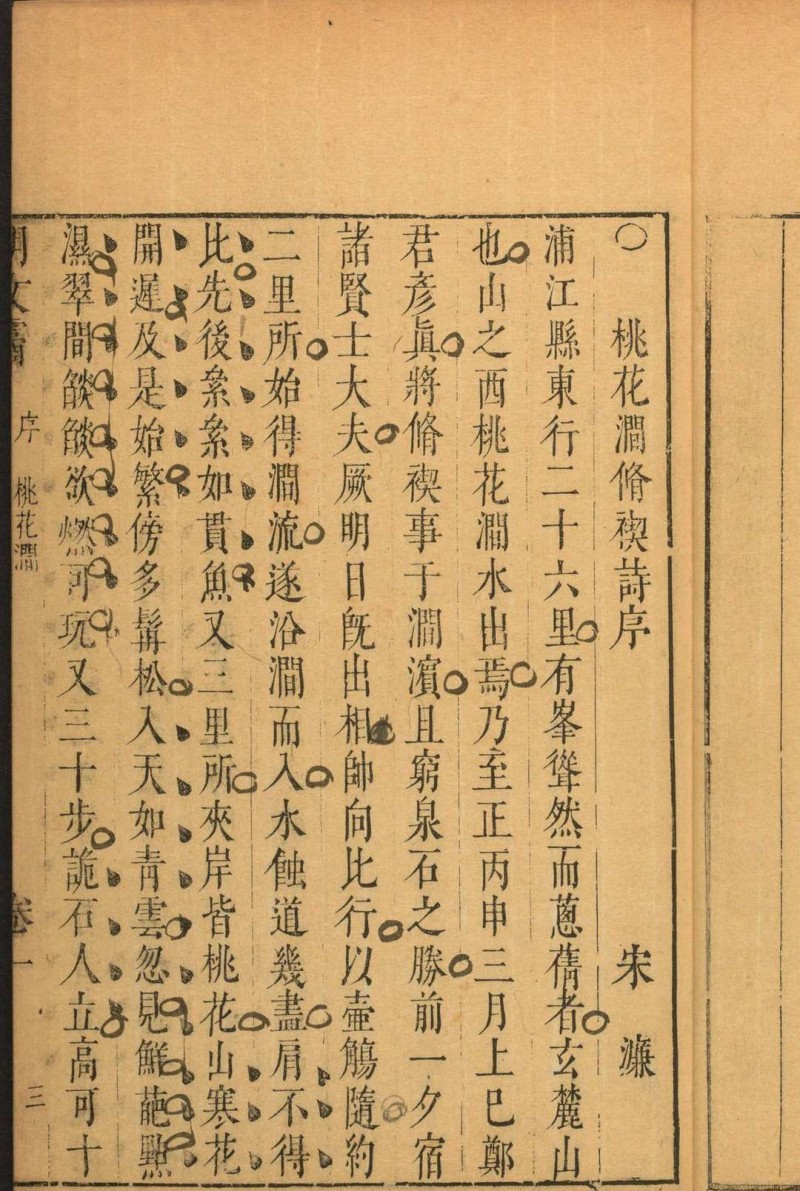 ○桃花澗脩禊詩序 宋濂
浦江縣東行二十六里有峯聳然而蔥蒨者玄麓山
也山之西桃花澗水出焉乃至正丙申三月上巳鄭
君彥眞將脩禊事于澗濵且窮泉石之勝前一夕宿
諸賢士大夫厥明日旣出相帥向比行以壺觴隨約
二里所始得澗流遂沿澗而入水蝕道幾盡肩不得
比先後絫絫如貫魚又三里所夾岸皆桃花山寒花
開遲及是始繁傍多髯松入天如靑雲忽見鮮葩㸃
濕翠間燄燄欲燃可玩又三十步詭石人立高可十
序 桃花澗 卷一 三